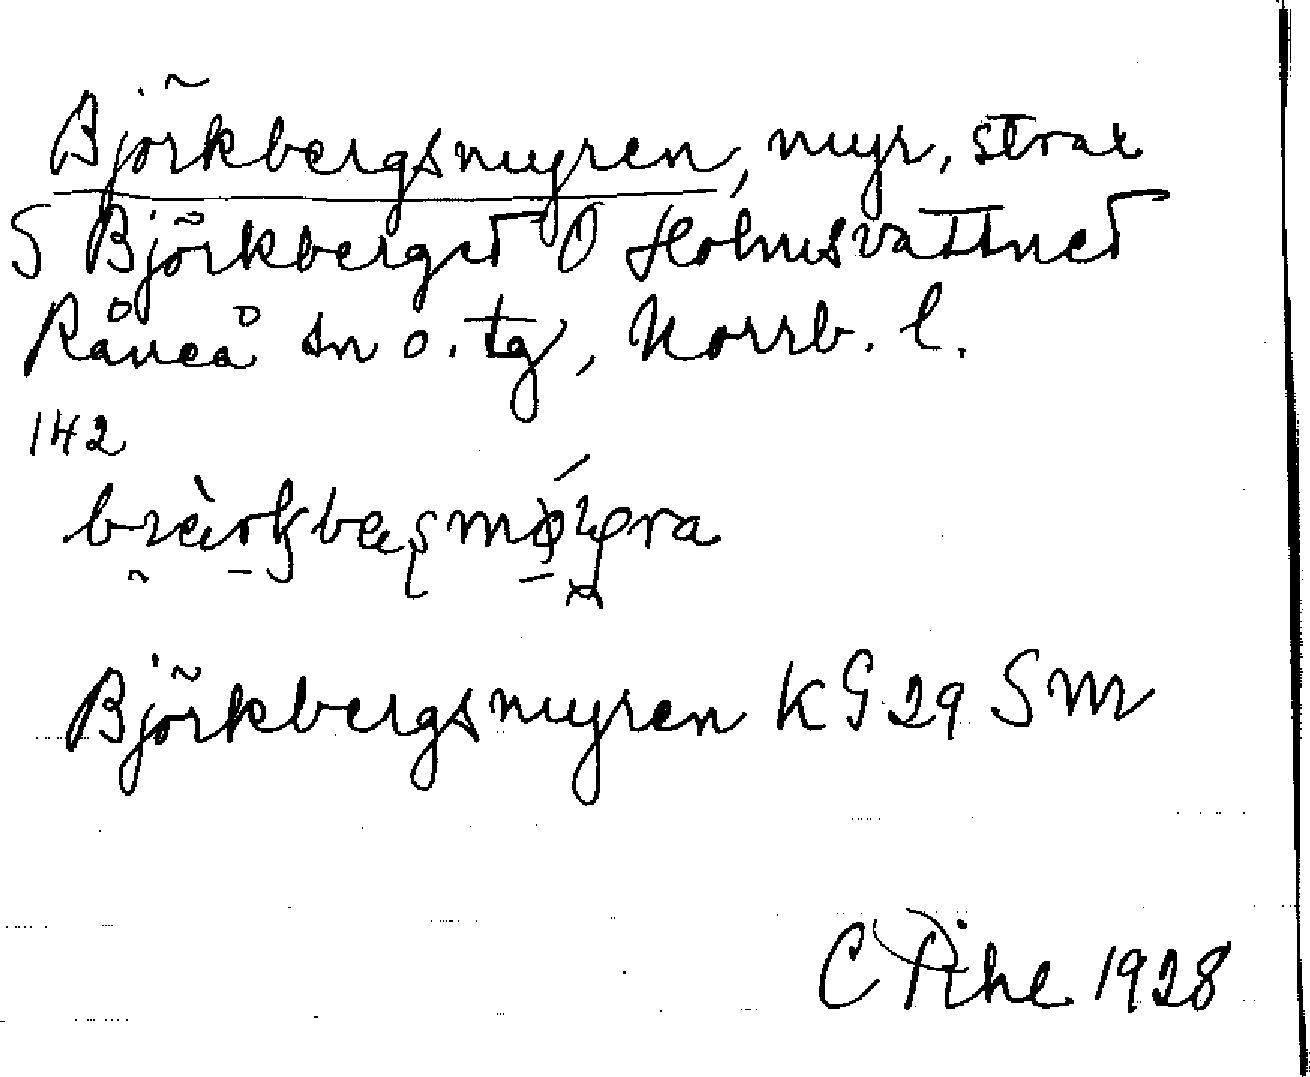 Björkbergsmyren, myr, strax
S Björkberget O Holmsvattnet
Råneå sn o. tg, Norrb. l.
142
Björkbergsmyren KG 29 SM
C Pihl 1928